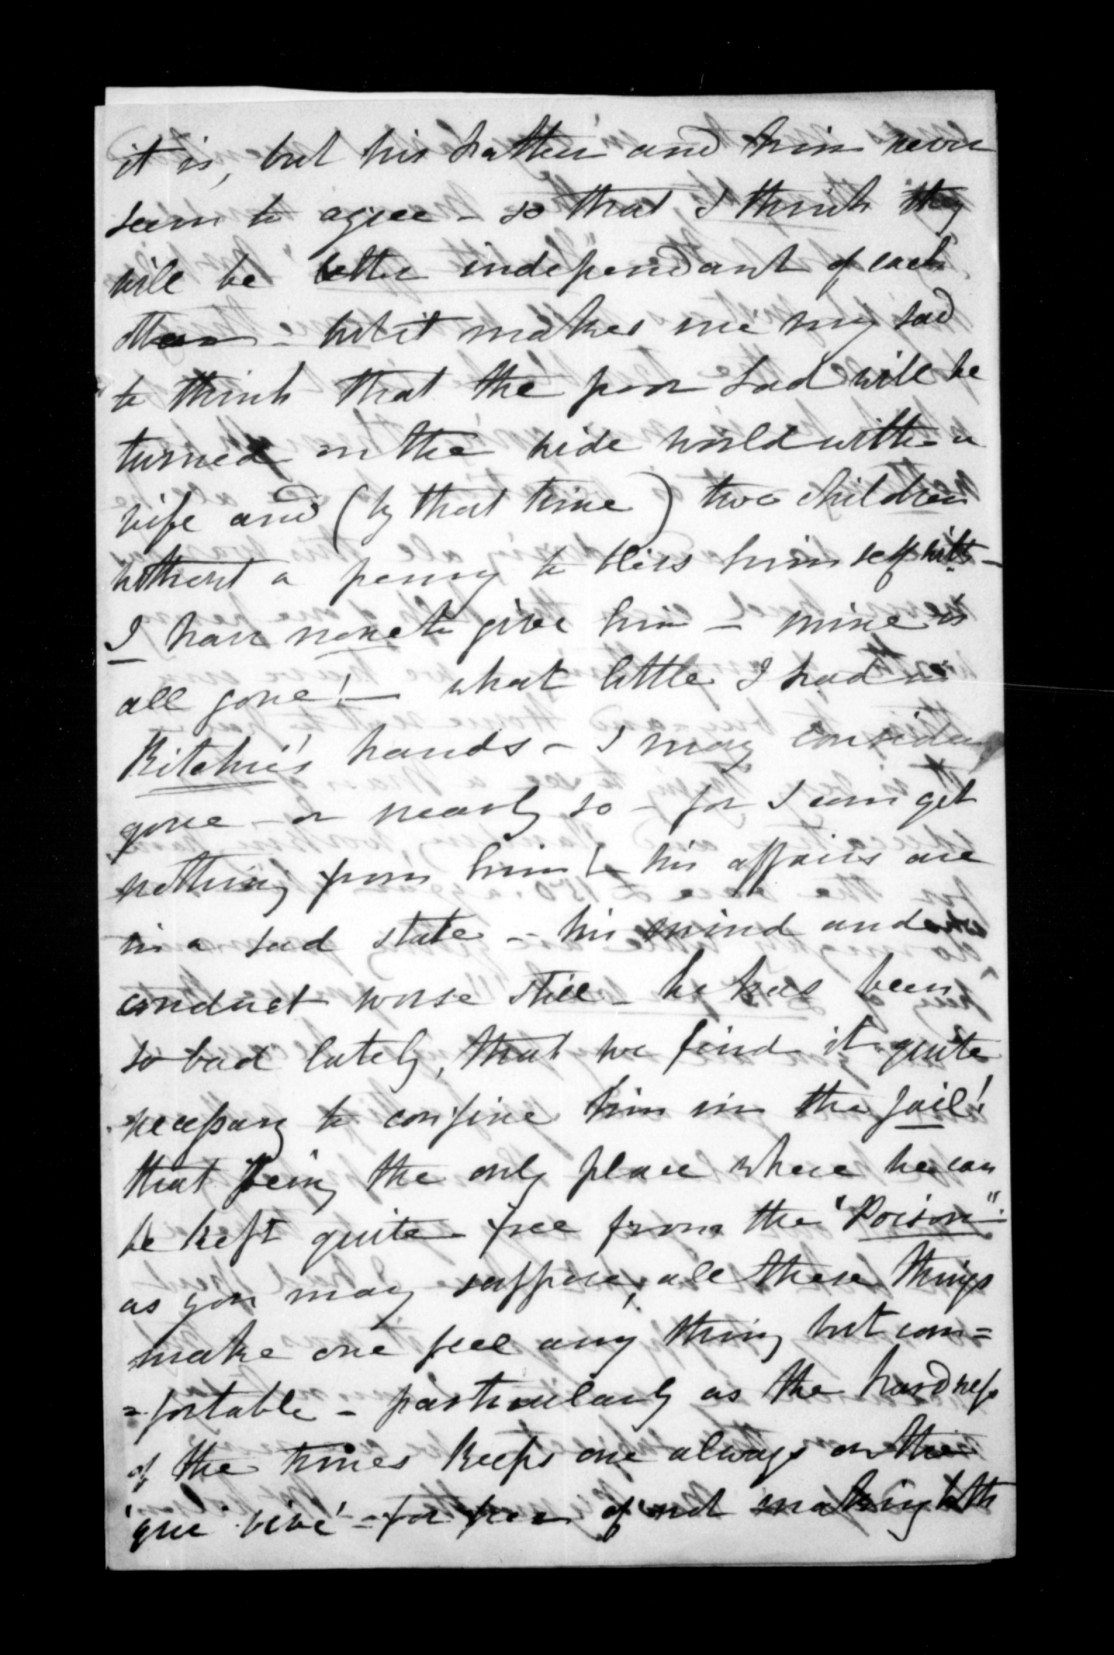 it is, but his father and him never
seem to agree - so that I think they
will be better independant of each
other - but it makes me very sad
to think that the poor lad will be
turned on the wide world with a
wife and (by that time) two children
without a penny to bless himself with -
I have none to give him - mine is
all gone! - what little I had in
Ritchie's hands - I may consider
gone - or nearly so - for I can get
nothing from him! - his affairs are
in a sad state - his mind and
conduct worse still - he has been
so bad lately, that we find it quite
necessary to confine him in the Jail!
that being the only place where he can
be kept quite free from the "Poison".
as you may suppose, all these things
make one feel any thing but com=
=fortable - particularly as the hardness
of the times keeps one always on the
'qui vive' - for fear of not making both